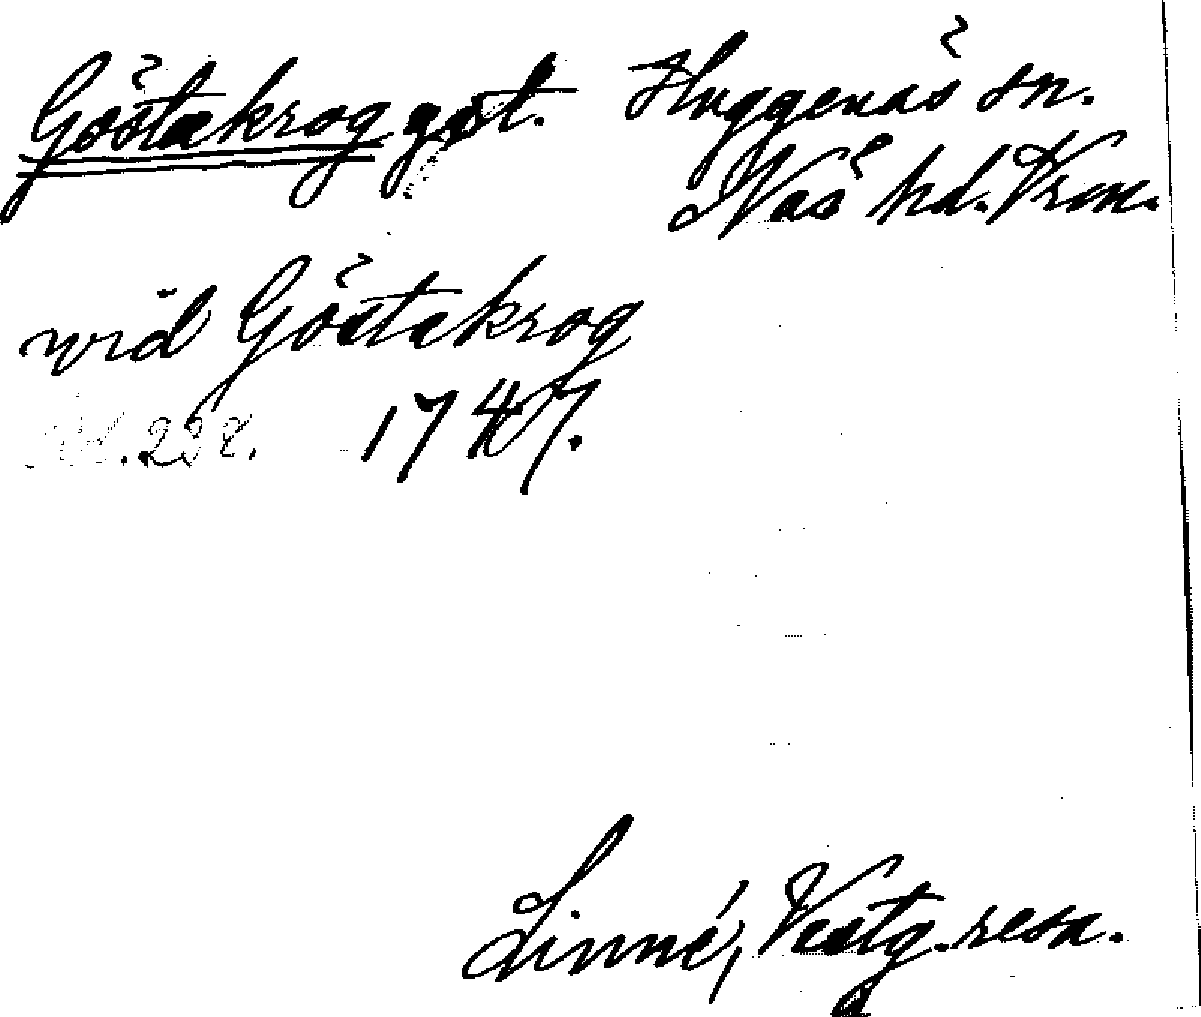 Göstakrog gst. Huggenäs sn.
Näs hd. Vrml.
vid Göstakrog
238. 1747.
Linné, Vestg. resa.